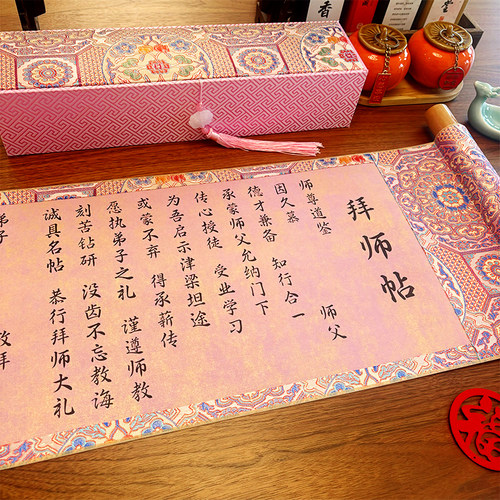 拜师帖
师父
师尊道鉴
因久慕
德才兼备 知行合一
承蒙师父允纳门下
传心授徒 受业学习
为吾启示津梁坦途
或蒙不弃 得承薪传
愿执弟子之礼 谨遵师教
刻苦钻研 没齿不忘教诲
诚具名帖 恭行拜师大礼
弟子 敬拜
香